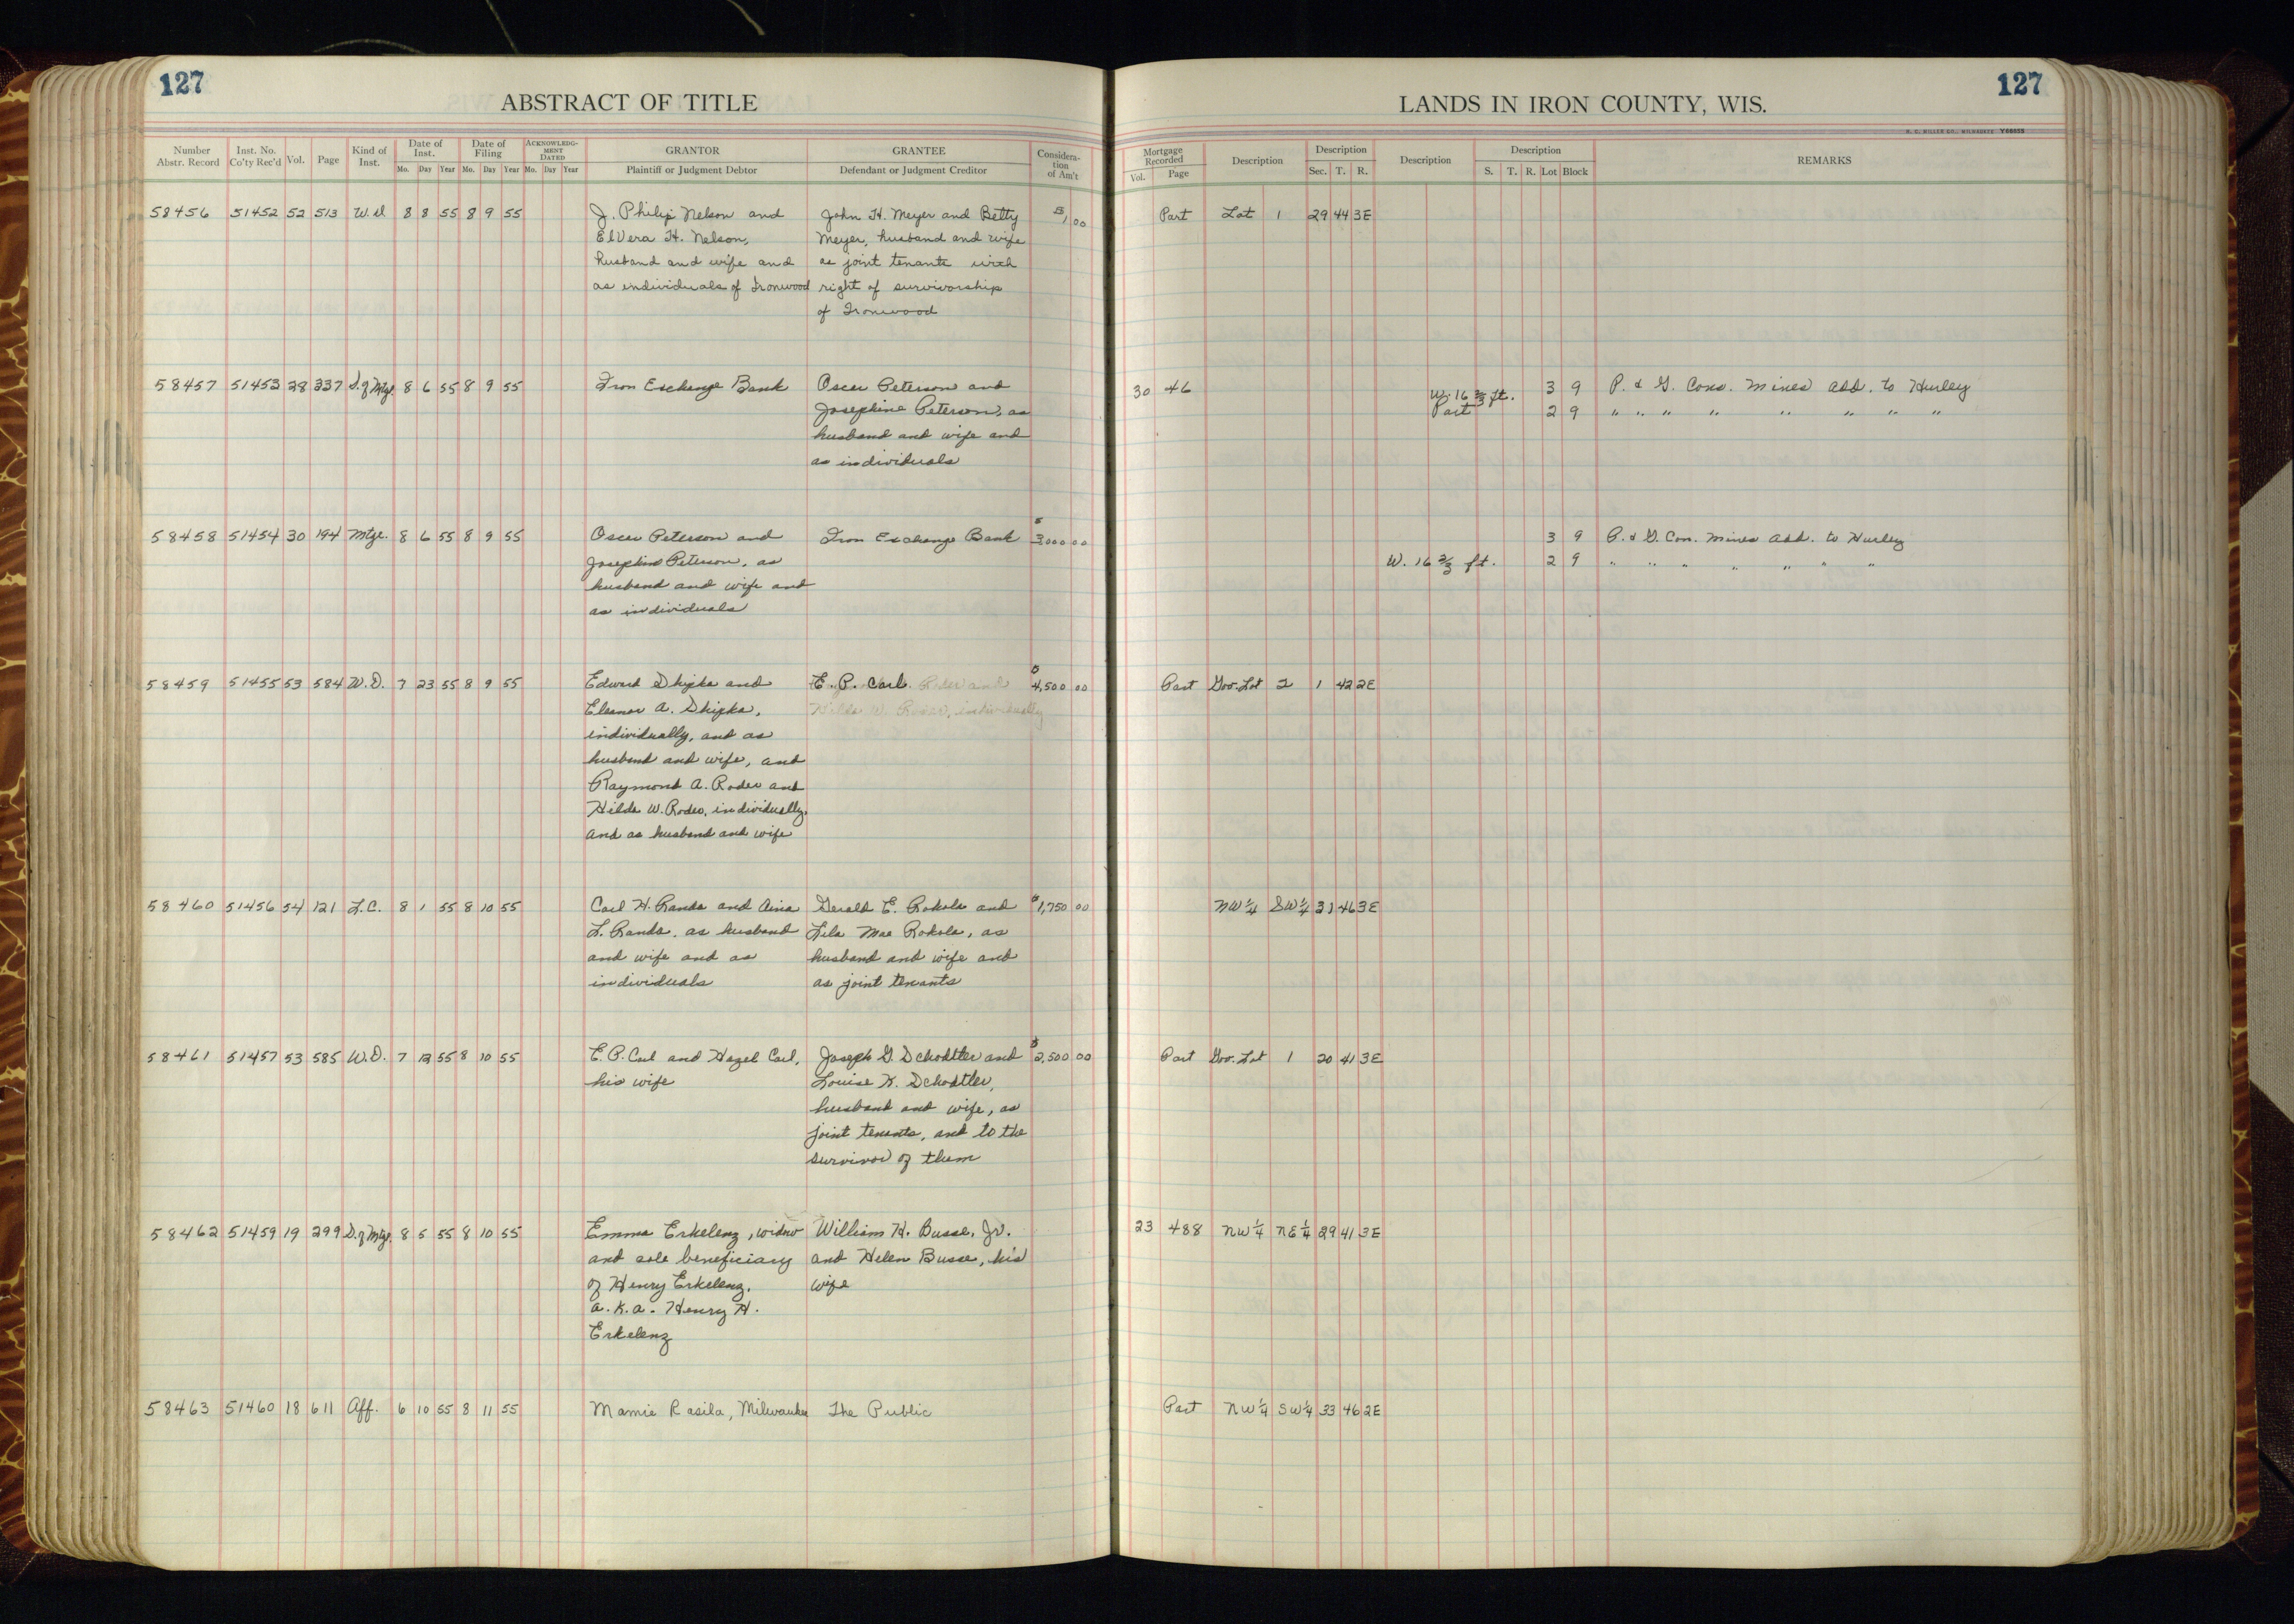 127
ABSTRACT OF TITLE
LANDS IN IRON COUNTY, WIS.
127
H. C. MILLER CO., MILWAUKEE Y66655
Number Abstr. Record Inst. No. Co'ty Rec'd Vol. Page Kind of Inst. Date of Inst. Mo. Day Year Date of Filing Mo. Day Year ACKNOWLEDGMENT DATED Mo. Day Year GRANTOR Plaintiff or Judgment Debtor GRANTEE Defendant or Judgment Creditor Consideration of Am't
Mortgage Recorded Vol. Page Description Description Sec. T. R. Description Description S. T. R. Lot Block REMARKS
58456 51452 52 513 W.d 8 8 55 8 9 55 J. Philip Nelson and John H. Meyer and Betty $1.00 Part Lot 1 29 44 3E
ElVera H. Nelson, Meyer, husband and wife
husband and wife and as joint tenants with
as individuals of Ironwood right of survivorship
of Ironwood
58457 51453 28 337 S. of Mtg. 8 6 55 8 9 55 Iron Exchange Bank Oscar Peterson and 30 46 W. 16 2/3 ft. 3 9 P. & G. Cons. Mines Add. to Hurley
Josephine Peterson, as Part 2 9 " " " " " " " "
husband and wife and
as individuals
58458 51454 30 194 Mtge. 8 6 55 8 9 55 Oscar Peterson and Iron Exchange Bank $3,000 00 3 9 P. & G. Con. Mines Add. to Hurley
Josephine Peterson, as W. 16 2/3 ft. 2 9 " " " " " " "
husband and wife and
as individuals
58459 51455 53 584 W.D. 7 23 55 8 9 55 Edward Skipka and E. P. Carl $4,500 00 Part Gov. Lot 2 1 42 2E
Eleanor A. Skipka, Hilda W. Rodeo, individually
individually, and as
husband and wife, and
Raymond A. Rodeo and
Hilda W. Rodeo, individually,
and as husband and wife
58460 51456 54 121 L.C. 8 1 55 8 10 55 Carl H. Randa and Aina Gerald E. Rokola and $1,750 00 NW 1/4 SW 1/4 31 46 3E
L. Randa, as husband Lila Mae Rokola, as
and wife and as husband and wife and
individuals as joint tenants
58461 51457 53 585 W.D. 7 12 55 8 10 55 E. P. Carl and Hazel Carl, Joseph G. Schodtler and $2,500 00 Part Gov. Lot 1 20 41 3E
his wife Louise K. Schodtler,
husband and wife, as
joint tenants, and to the
survivor of them
58462 51459 19 299 S. of Mtg. 8 5 55 8 10 55 Emma Erkelenz, widow William H. Busse, Jr. 23 488 NW 1/4 NE 1/4 29 41 3E
and sole beneficiary and Helen Busse, his
of Henry Erkelenz, wife
a.k.a. Henry H.
Erkelenz
58463 51460 18 611 Aff. 6 10 55 8 11 55 Mamie Rasila, Milwaukee The Public Part NW 1/4 SW 1/4 33 46 2E